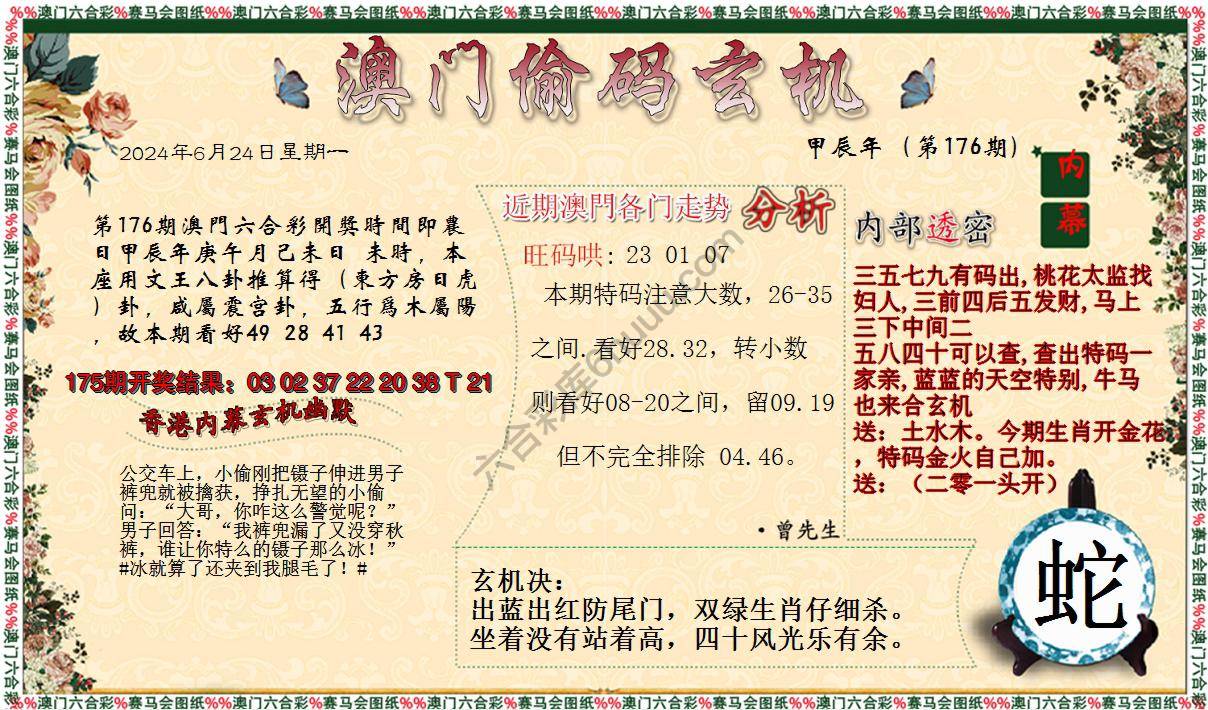 %%澳门六合彩%赛马会图纸%%澳门六合彩%赛马会图纸%%澳门六合彩%赛马会图纸%%澳门六合彩%赛马会图纸%%澳门六合彩%赛马会图纸%%
澳门偷码玄机
2024年6月24日星期一
甲辰年（第176期）
内幕
第176期澳門六合彩開獎時間即農
日甲辰年庚午月己未日 未時，本
座用文王八卦推算得（東方房日虎
）卦，咸屬震宫卦，五行爲木屬陽
，故本期看好49 28 41 43
175期开奖结果：03 02 37 22 20 38 T 21
香港内幕玄机幽默
公交车上，小偷刚把镊子伸进男子
裤兜就被擒获，挣扎无望的小偷
问：“大哥，你咋这么警觉呢？”
男子回答：“我裤兜漏了又没穿秋
裤，谁让你特么的镊子那么冰！”
#冰就算了还夹到我腿毛了！#
近期澳門各门走势 分析
旺码哄: 23 01 07
本期特码注意大数，26-35
之间.看好28.32，转小数
则看好08-20之间，留09.19
但不完全排除 04.46。
·曾先生
内部透密
三五七九有码出,桃花太监找
妇人,三前四后五发财,马上
三下中间二
五八四十可以查,查出特码一
家亲,蓝蓝的天空特别,牛马
也来合玄机
送：土水木。今期生肖开金花
，特码金火自己加。
送：（二零一头开）
玄机决：
出蓝出红防尾门，双绿生肖仔细杀。
坐着没有站着高，四十风光乐有余。
蛇
%%澳门六合彩%赛马会图纸%%澳门六合彩%赛马会图纸%%澳门六合彩%赛马会图纸%%澳门六合彩%赛马会图纸%%澳门六合彩%赛马会图纸%%